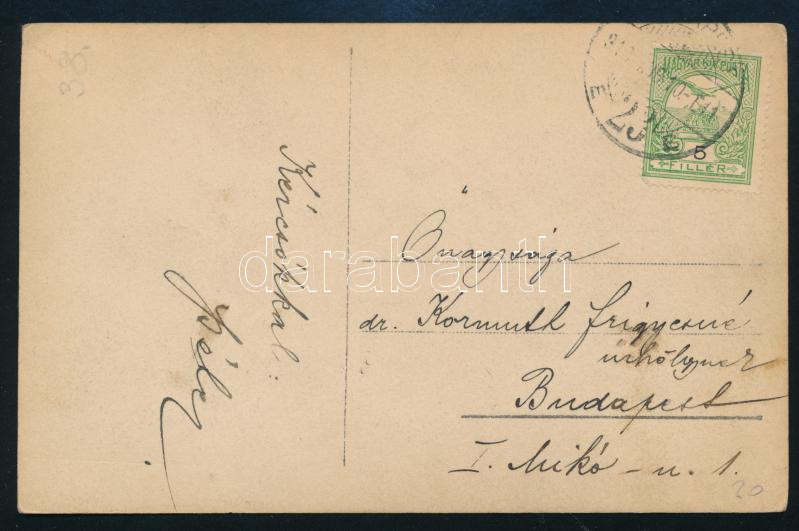 33.
Kézcsókkal:
Béla
MAGYAR KIR. POSTA
5
FILLÉR
Őnagysága
dr. Kormuth Frigyesné
úrhölgynek
Budapest
I. Mikó-u. 1.
20
darabanth